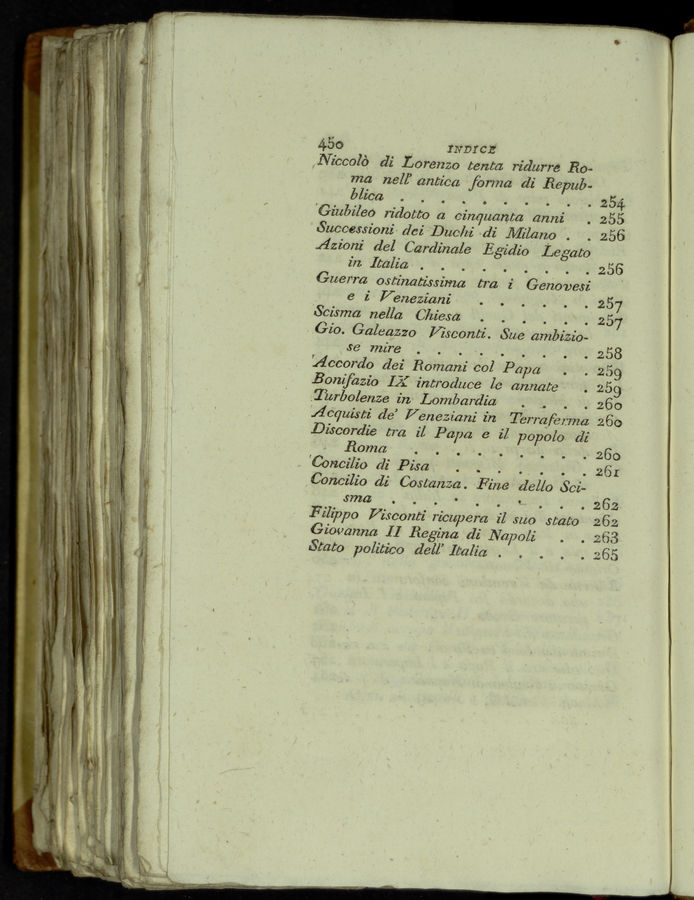 450 INDICE
Niccolò di Lorenzo tenta ridurre Ro-
ma nell' antica forma di Repub-
blica . . . . . . . . . . 254
Giubileo ridotto a cinquanta anni . 255
Successioni dei Duchi di Milano . . 256
Azioni del Cardinale Egidio Legato
in Italia . . . . . . . . . 256
Guerra ostinatissima tra i Genovesi
e i Veneziani . . . . . . 257
Scisma nella Chiesa . . . . . . 257
Gio. Galeazzo Visconti. Sue ambizio-
se mire . . . . . . . . . 258
Accordo dei Romani col Papa . . 259
Bonifazio IX introduce le annate . 259
Turbolenze in Lombardia . . . . 260
Acquisti de' Veneziani in Terraferma 260
Discordie tra il Papa e il popolo di
Roma . . . . . . . . . 260
Concilio di Pisa . . . . . . . 261
Concilio di Costanza. Fine dello Sci-
sma . . . . . . . . . . 262
Filippo Visconti ricupera il suo stato 262
Giovanna II Regina di Napoli . . 263
Stato politico dell' Italia . . . . . 265